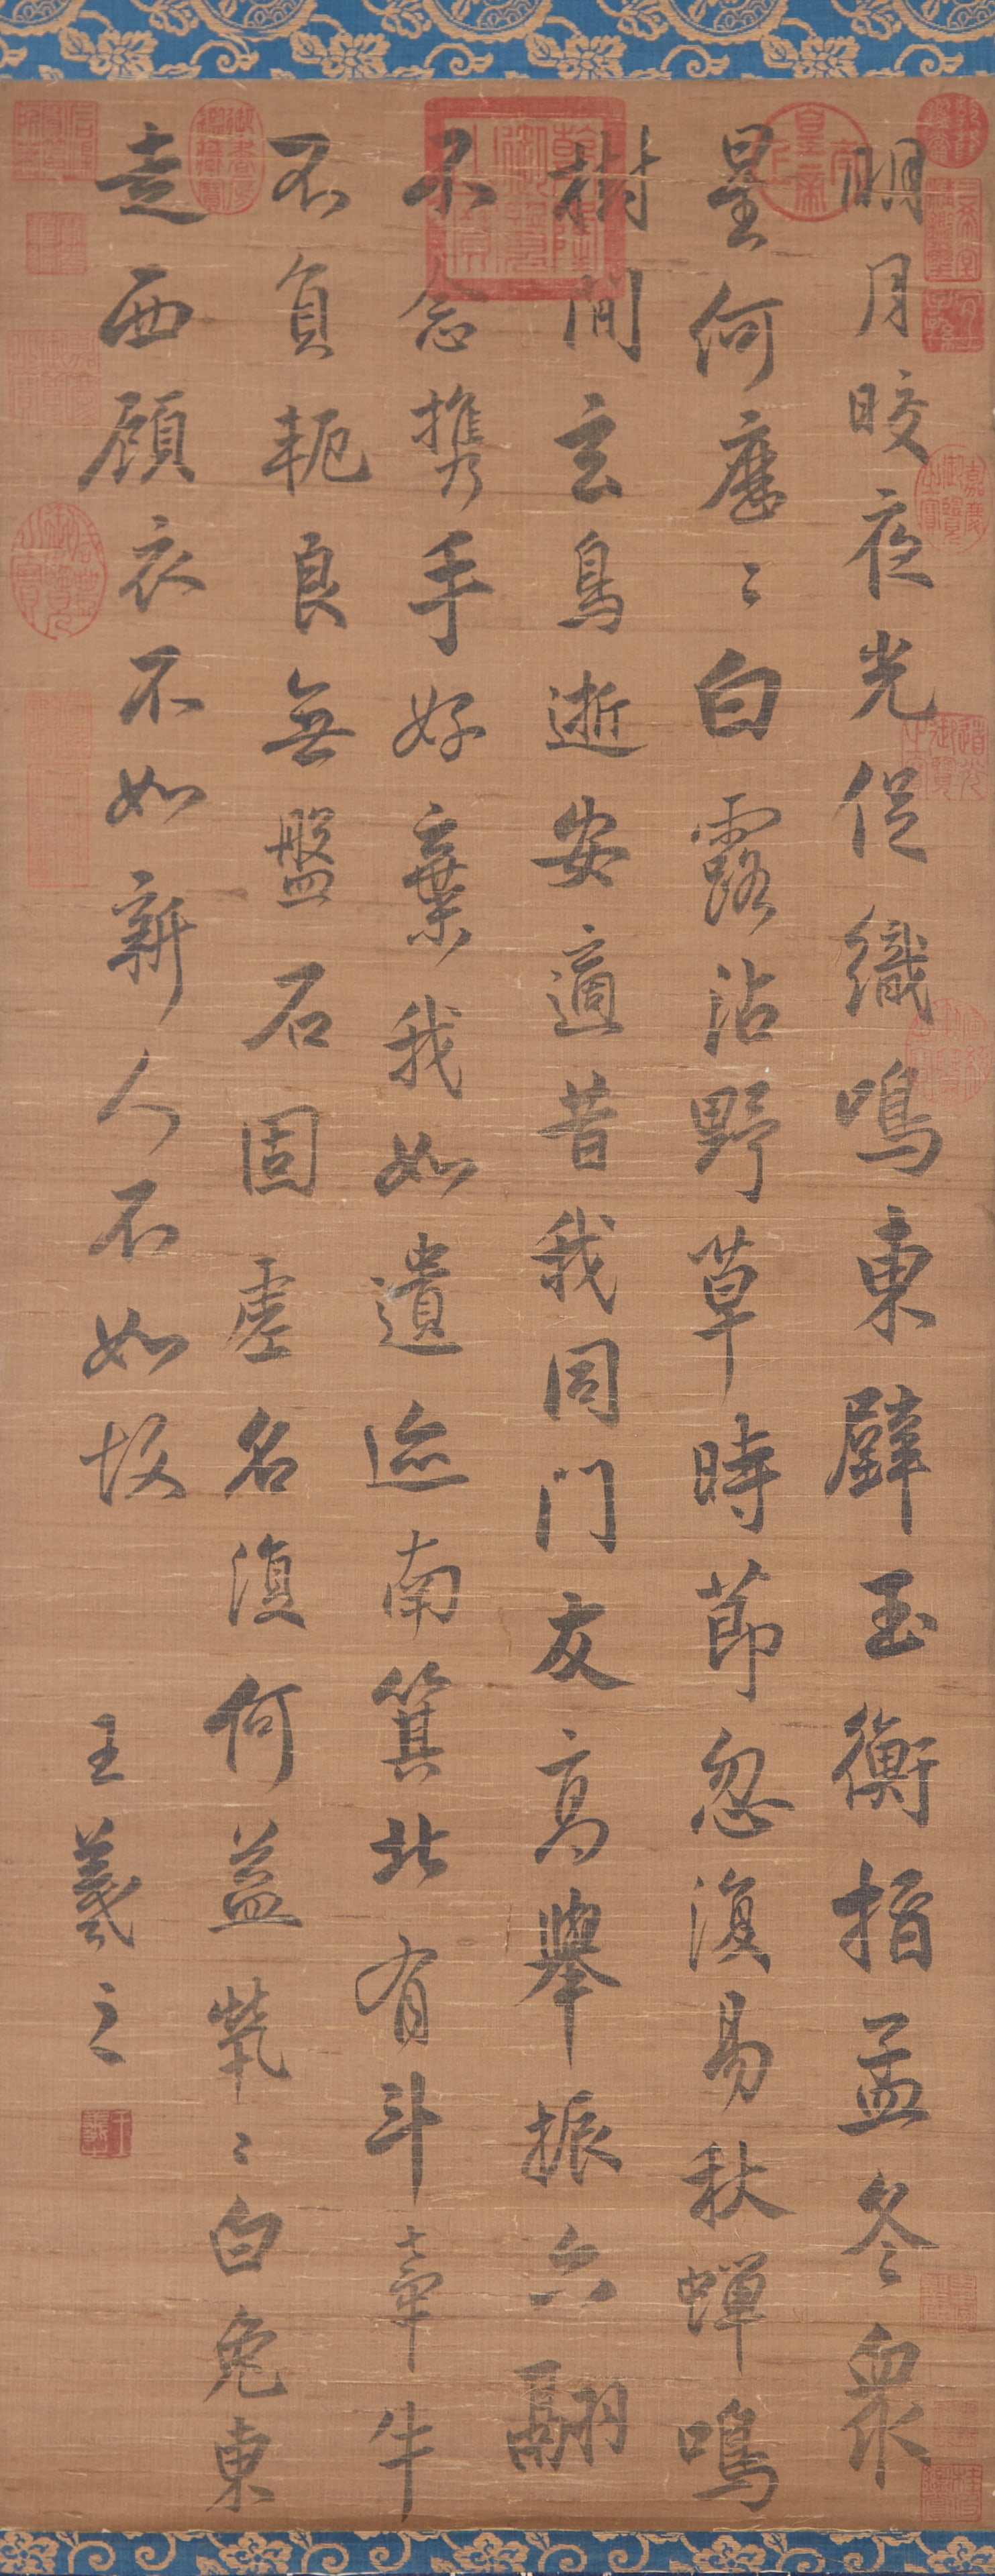 明月晈夜光促織鳴東壁玉衡指孟冬衆
星何歷〻白露沾野草時節忽復易秋蟬鳴
樹間玄鳥逝安適昔我同門友高舉振六翮
不念携手好棄我如遺迹南箕北有斗牽牛
不負軛良無盤石固虛名復何益煢〻白兔東
走西顧衣不如新人不如故
王羲之